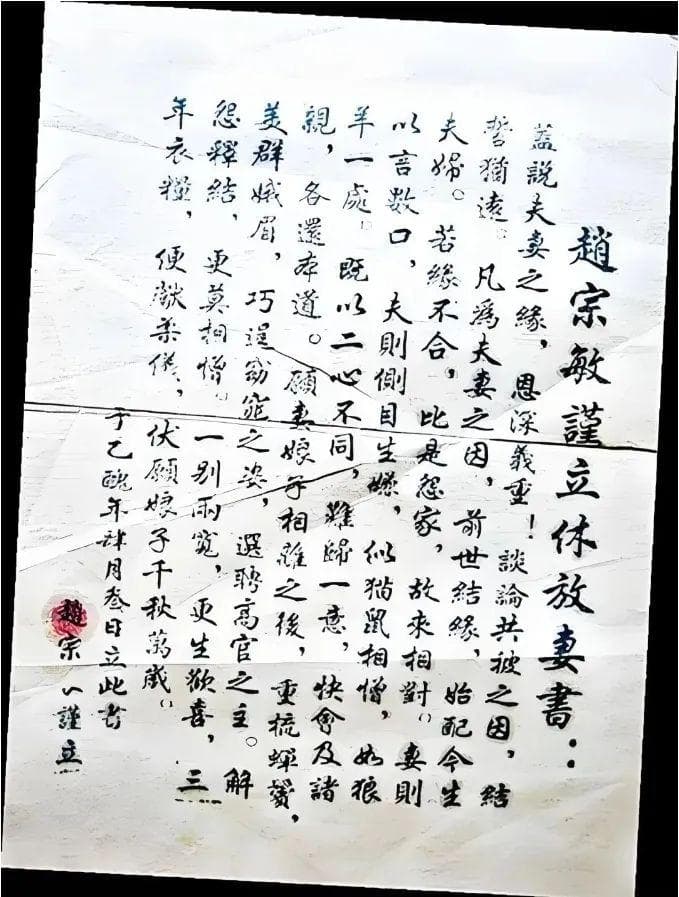 趙宗敏謹立休放妻書：
蓋說夫妻之緣，恩深義重！談論共被之因，結
誓猶遠。凡為夫妻之因，前世結緣，始配今生
夫婦。若緣不合，比是怨家，故來相對。妻則
以言數口，夫則側目生嫌，似猫鼠相憎，如狼
羊一處。既以二心不同，難歸一意，快會及諸
親，各還本道。願妻娘子相離之後，重梳蟬鬢，
美群娥眉，巧逞窈窕之姿，選聘高官之主。解
怨釋結，更莫相憎。一別兩寬，更生歡喜，三
年衣糧，便獻柔儀，伏願娘子千秋萬歲。
于乙醜年肆月叁日立此書
趙宗 謹立